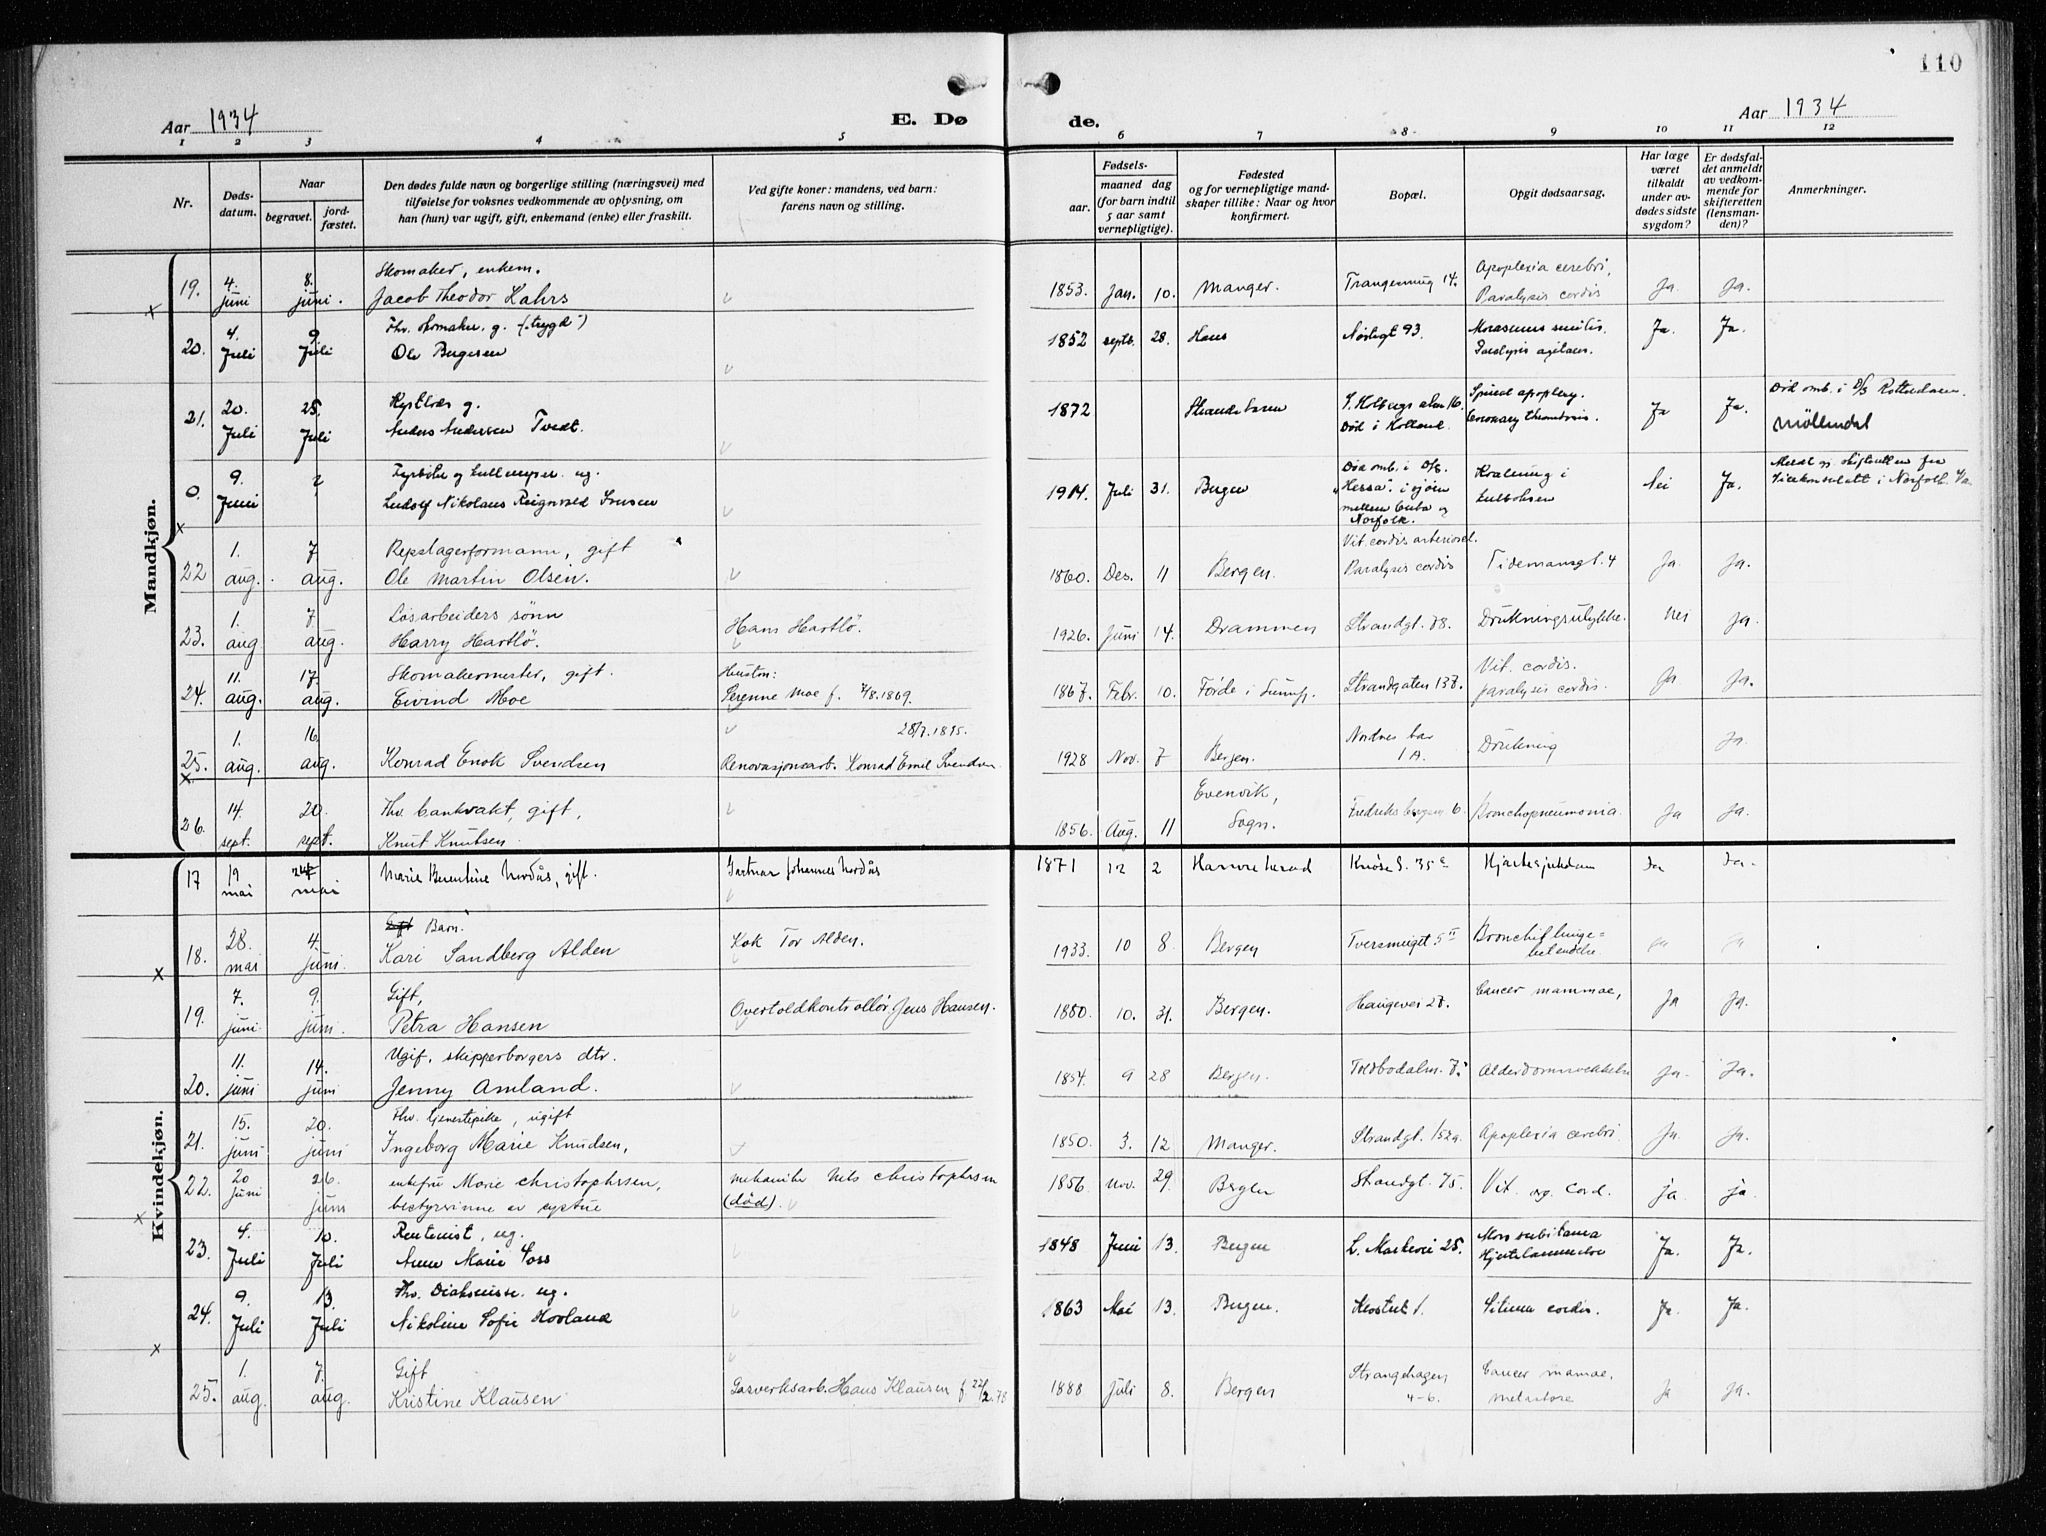 110
Aar 1934
E. Døde.
Aar 1934
1 2 3 4 5 6 7 8 9 10 11 12
Nr.
Døds-datum.
Naar
begravet.
jord-fæstet.
Den dødes fulde navn og borgerlige stilling (næringsvei) med
tilføielse for voksnes vedkommende av oplysning, om
han (hun) var ugift, gift, enkemand (enke) eller fraskilt.
Ved gifte koner: mandens, ved barn:
farens navn og stilling.
Fødsels-
aar.
maaned dag
(for barn indtil
5 aar samt
vernepligtige).
Fødested
og for vernepligtige mand-
skaper tillike: Naar og hvor
konfirmert.
Bopæl.
Opgit dødsaarsag.
Har læge
været
tilkaldt
under av-
dødes sidste
sygdom?
Er dødsfal-
det anmeldt
av vedkom-
mende for
skifteretten
(lensman-
den)?
Anmerkninger.
Mandkjøn.
19. 4. juni 8. juni. Skomaker, enkem. Jacob Theodor Kahrs 1853. Jan. 10. Manger. Trangesmug 14. Apoplexia cerebri, Paralysis cordis Ja. Ja.
20. 4. Juli 9 Juli Fhv. skomaker. g. (trygd) Ole Bergesen 1852 septb. 28. Haus Nøstegt 93. Marasmus senilis. Paralysis agitans. Ja. Ja.
21. 20. Juli 25. Juli g. Anders Andersen Tvedt. 1872 Strandebarm L. Holbergs alm 16. Død i Holland. Spinal apoplexy. Coronary thrombosis. Ja Ja. Død omb. i D/S Rotterdam. Møllendal
0. 9. Juni ? Fyrbøter og ug. Ludolf Nikolaus 1904 Juli 31. Bergen Død omb. i D/S. "Hessa". i sjøen mellem Cuba og Norfolk. Kvælning i Nei Ja. Meldt Norfolk.
22 1. aug. 7 aug. Repslagerformann, gift Ole Martin Olsen. 1860. Des. 11 Bergen. Vit. cordis arteriosel. Paralysis cordis Tidemansgt. 4 Ja. Ja.
23. 1. aug 7 aug. Løsarbeiders sønn Harry Hartlö. Hans Hartlö. 1926. Juni 14. Drammen Strandgt. 78. Drukningsulykke. Nei Ja.
24. 11. aug. 17. aug. Skomakermester, gift. Eivind Moe Hustru: Serenne Moe f. 7/8.1869. 1867. Febr. 10. Førde i Sunnf. Strandgaten 137. Vit. cordis. paralysis cordis. Ja Ja.
25. 1. aug. 16. aug. Konrad Enok Svendsen 28/7.1895. Renovasjonsarb. Konrad Emil Svendsen 1928 Nov. 7 Bergen. Nordnes bar 1 A. Drukning Ja.
26. 14. sept. 20. sept. Fhv. bankvakt, gift, Knut Knutsen 1856. Aug. 11 Evenvik, Sogn. Fredriks bergsg 6. Bronchopneumonia. Ja Ja.
Kvindekjøn.
17 19 mai 24 mai Marie Berentine Nordås, gift. Gartner Johannes Nordås 1871 12 2 Hamre herad Knøse g. 35 c Hjertesykdom Ja Ja.
18. 28. mai 4. juni. Gift Barn. Kari Sandberg Alden Kok Tor Alden. 1933. 10 8. Bergen Tversmuget 5 II Bronchit lunge=betendelse. Ja Ja
19. 7. juni. 9. juni. Gift, Petra Hansen Overtoldkontrollör Jens Hansen. 1880. 10. 31. Bergen. Haugevei 27. Cancer mammae, Ja Ja.
20. 11. juni 14. juni Ugif. skipperborgers dtr. Jenny Amland. 1854. 9 28 Bergen. Toldbodalm. 7. Alderdomssvekkelse Ja. Ja.
21. 15. juni 20. juni Fhv. tjenestepike, ugift Ingeborg Marie Knudsen, 1850. 3. 12 Manger. Strandgt. 152a. Apoplexia cerebri Ja. Ja.
22. 20 juni 26. juni enkefru Marie Christophersen, bestyrerinne av systue mekaniker Nils Christophersen (død). 1856. Nov. 29. Bergen Strandgt. 75. Vit. org. Cord. ja ja.
23. 4. Juli 10. Juli Rentenist, ug. Anne Marie Foss 1848 Juni 13. Bergen L. Markevei 25. Mors subitanea Hjertelammelse Ja. Ja.
24. 9. Juli 13. Juli Fhv. Diakonisse. ug. Nikoline Sofie Hovland 1863 Mai 13. Bergen. Klostret 1. Vitium cordis. Ja. Ja.
25. 1. aug. 7. aug. Gift Kristine Klausen Gasverksarb. Hans Klausen f. 22/2.78 1888 Juli 8. Bergen Strangehagen 4-6. Cancer mamae, metastase Ja Ja.